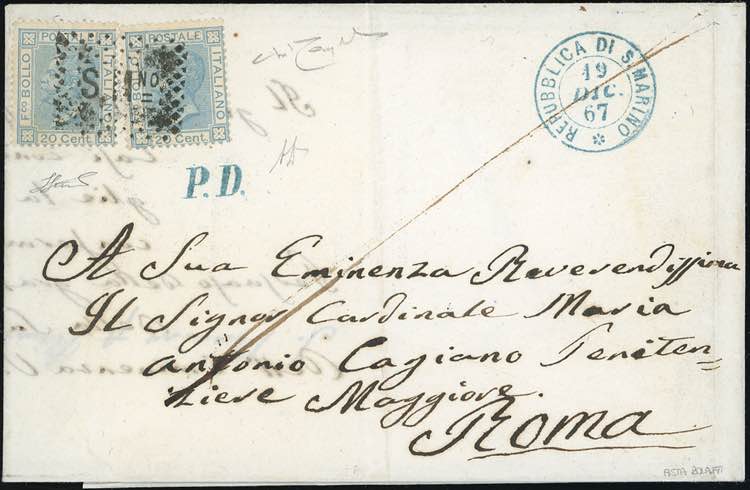 POSTALE
F.co BOLLO
ITALIANO
20 Cent
POSTALE
ITALIANO
20 Cent
REPUBBLICA DI S. MARINO
19
DIC.
67
P.D.
A Sua Eminenza Reverendissima
Il Signor Cardinale Maria
Antonio Cagiano Peniten=
ziere Maggiore.
Roma